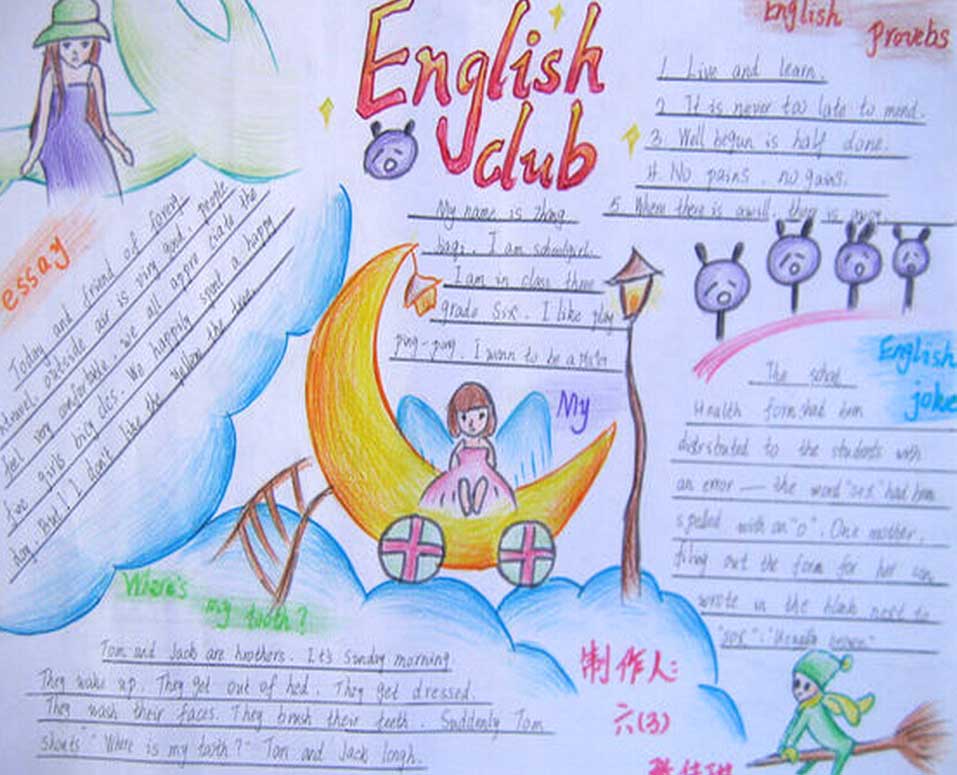 English
club
English
Proverbs
1. Live and learn.
2. It is never too late to mend.
3. Well begun is half done.
4. No pains, no gains.
5. Where there is a will there is
essay
Today and friend of
outside air is very good, people
feel very comfortable, we all appre ciate the
girls We happily spent a happy
day. But I don't like the Yellow the
My name is Zhang
I am schoolgirl.
I am in class three
grade six. I like play
ping-pong. I wann to be a
My
English
joke
The school
Health form had
distrbuted to the students with
an error — the word "sex" had
spelled with an "o". One mother,
out the form for her son
wrote in the blank next to
"sox":
Where's
my tooth?
Tom and Jack are brothers. It's Sunday morning
They wake up. They get out of bed. They get dressed.
They wash their faces. They brush their teeth. Suddenly Tom
shouts" Where is my tooth?" Tom and Jack
制作人:
六(3)